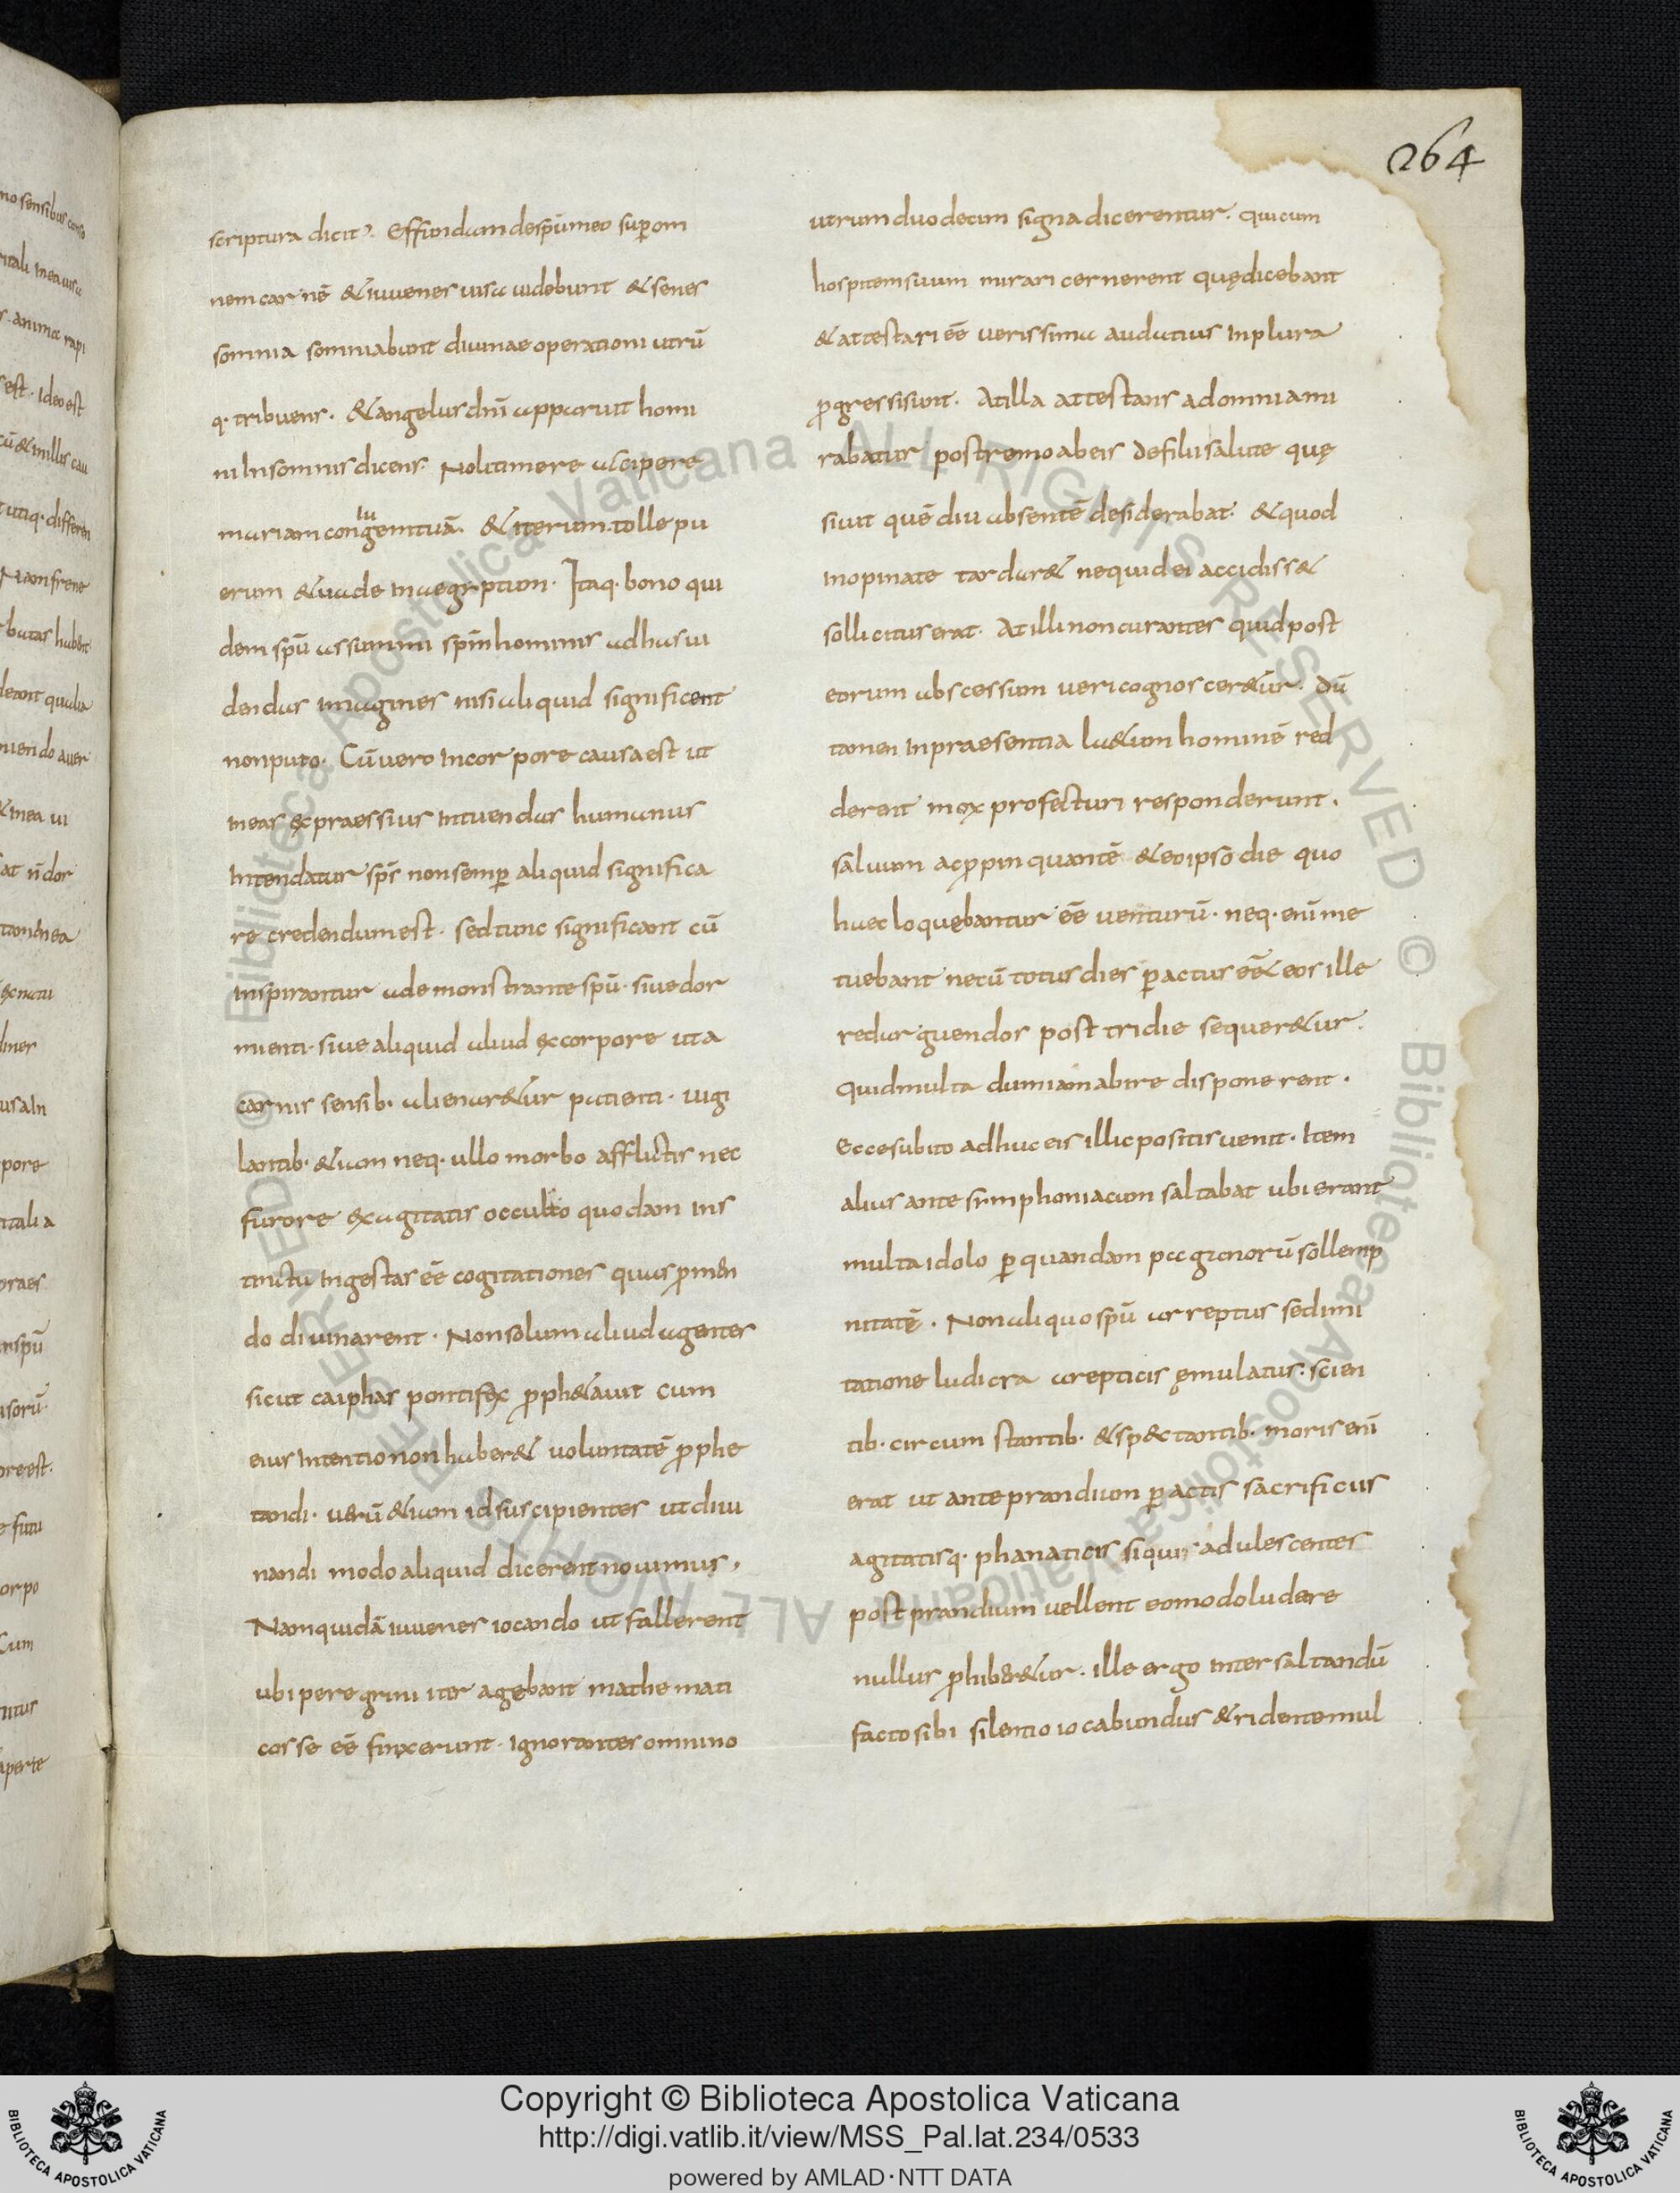 264
scriptura dicit. Effundam despū meo sup̱ om
nem carnē & iuvenes uisa uidebunt & senes
somnia somniabunt divinae operationi utrū
q· tribuens. & angelus dn̄i apparuit homi
ni Insomnis dicens. Noli timere accipere
mariam coniugem tuā. & iterum. tolle pu
erum & uade In aegyptum. Itaq· bono qui
dem spū assummi spm̄ hominis ad has ui
dendas imagines nisi aliquid significent
non puto. Cū uero In corpore causa est ut
In eas expraessius Intuendas humanus
Intendatur sps̄ non semp̱ aliquid significa
re credendum est. sed tunc significant cū
Inspirantur a demonstrante spū. siue dor
mienti. siue aliquid aliud ex corpore ut a
carnis sensib· alienar&ur patienti. uigi
lantib· &iam neq· ullo morbo afflictis nec
furore exagitatis occulto quodam ins
tinctu Ingestas eē cogitationes quas p̱men
do divinarent. Non solum aliud agentes
sicut caiphas pontifex p̱ph&auit cum
eius Intentio non haber& uoluntatē p̱phe
tandi. uerū &iam id suscipientes ut diui
nandi modo aliquid dicerent novimus,
Nam quidā iuvenes iocando ut fallerent
ubi peregrini iter agebant mathemati
cos se eē finxerunt. Ignorantes omnino
utrum duodecim signa dicerentur. qui cum
hospitem suum mirari cernerent quę dicebant
& attestari eē uerissima audatius In plura
p̱gressi sunt. At illa attestans ad omnia mi
rabatur postremo ab eis de filii salute quę
siuit quē diu absentē desiderabat. & quod
Inopinate tardar& ne quid ei accidiss&
sollicitus erat. At illi non curantes quid post
eorum abscessum ueri cognoscer&ur. dū
tamen In praesentia la&um hominē red
derent mox profecturi responderunt.
saluum ac p̱pinquantē & eo ipso die quo
haec loquębantur eē uenturū. neq· enī me
tuebant ne cū totus dies p̱actus eē& eos ille
redarguendos postridie sequer&ur.
Quid multa dum iam abire disponerent.
ecce subito adhuc eis illic positis uenit. Item
alius ante symphoniacum saltabat ubi erant
multa idolo p̱ quandam paganorū sollemp
nitatę. Non aliquo spū arreptus sed imi
tatione ludicra arepticis ęmulatus. scien
tib· circumstantib· & sp&tantib· moris enī
erat ut ante prandium p̱actis sacrificiis
agitatisq· phanaticis siquis adulescentes
post prandium uellent eo modo ludere
nullus p̱hiber&ur. ille ergo Inter saltandū
facto sibi silentio iocabundus & ridente mul
Copyright © Biblioteca Apostolica Vaticana
http://digi.vatlib.it/view/MSS_Pal.lat.234/0533
powered by AMLAD · NTT DATA
BIBLIOTECA APOSTOLICA VATICANA
BIBLIOTECA APOSTOLICA VATICANA